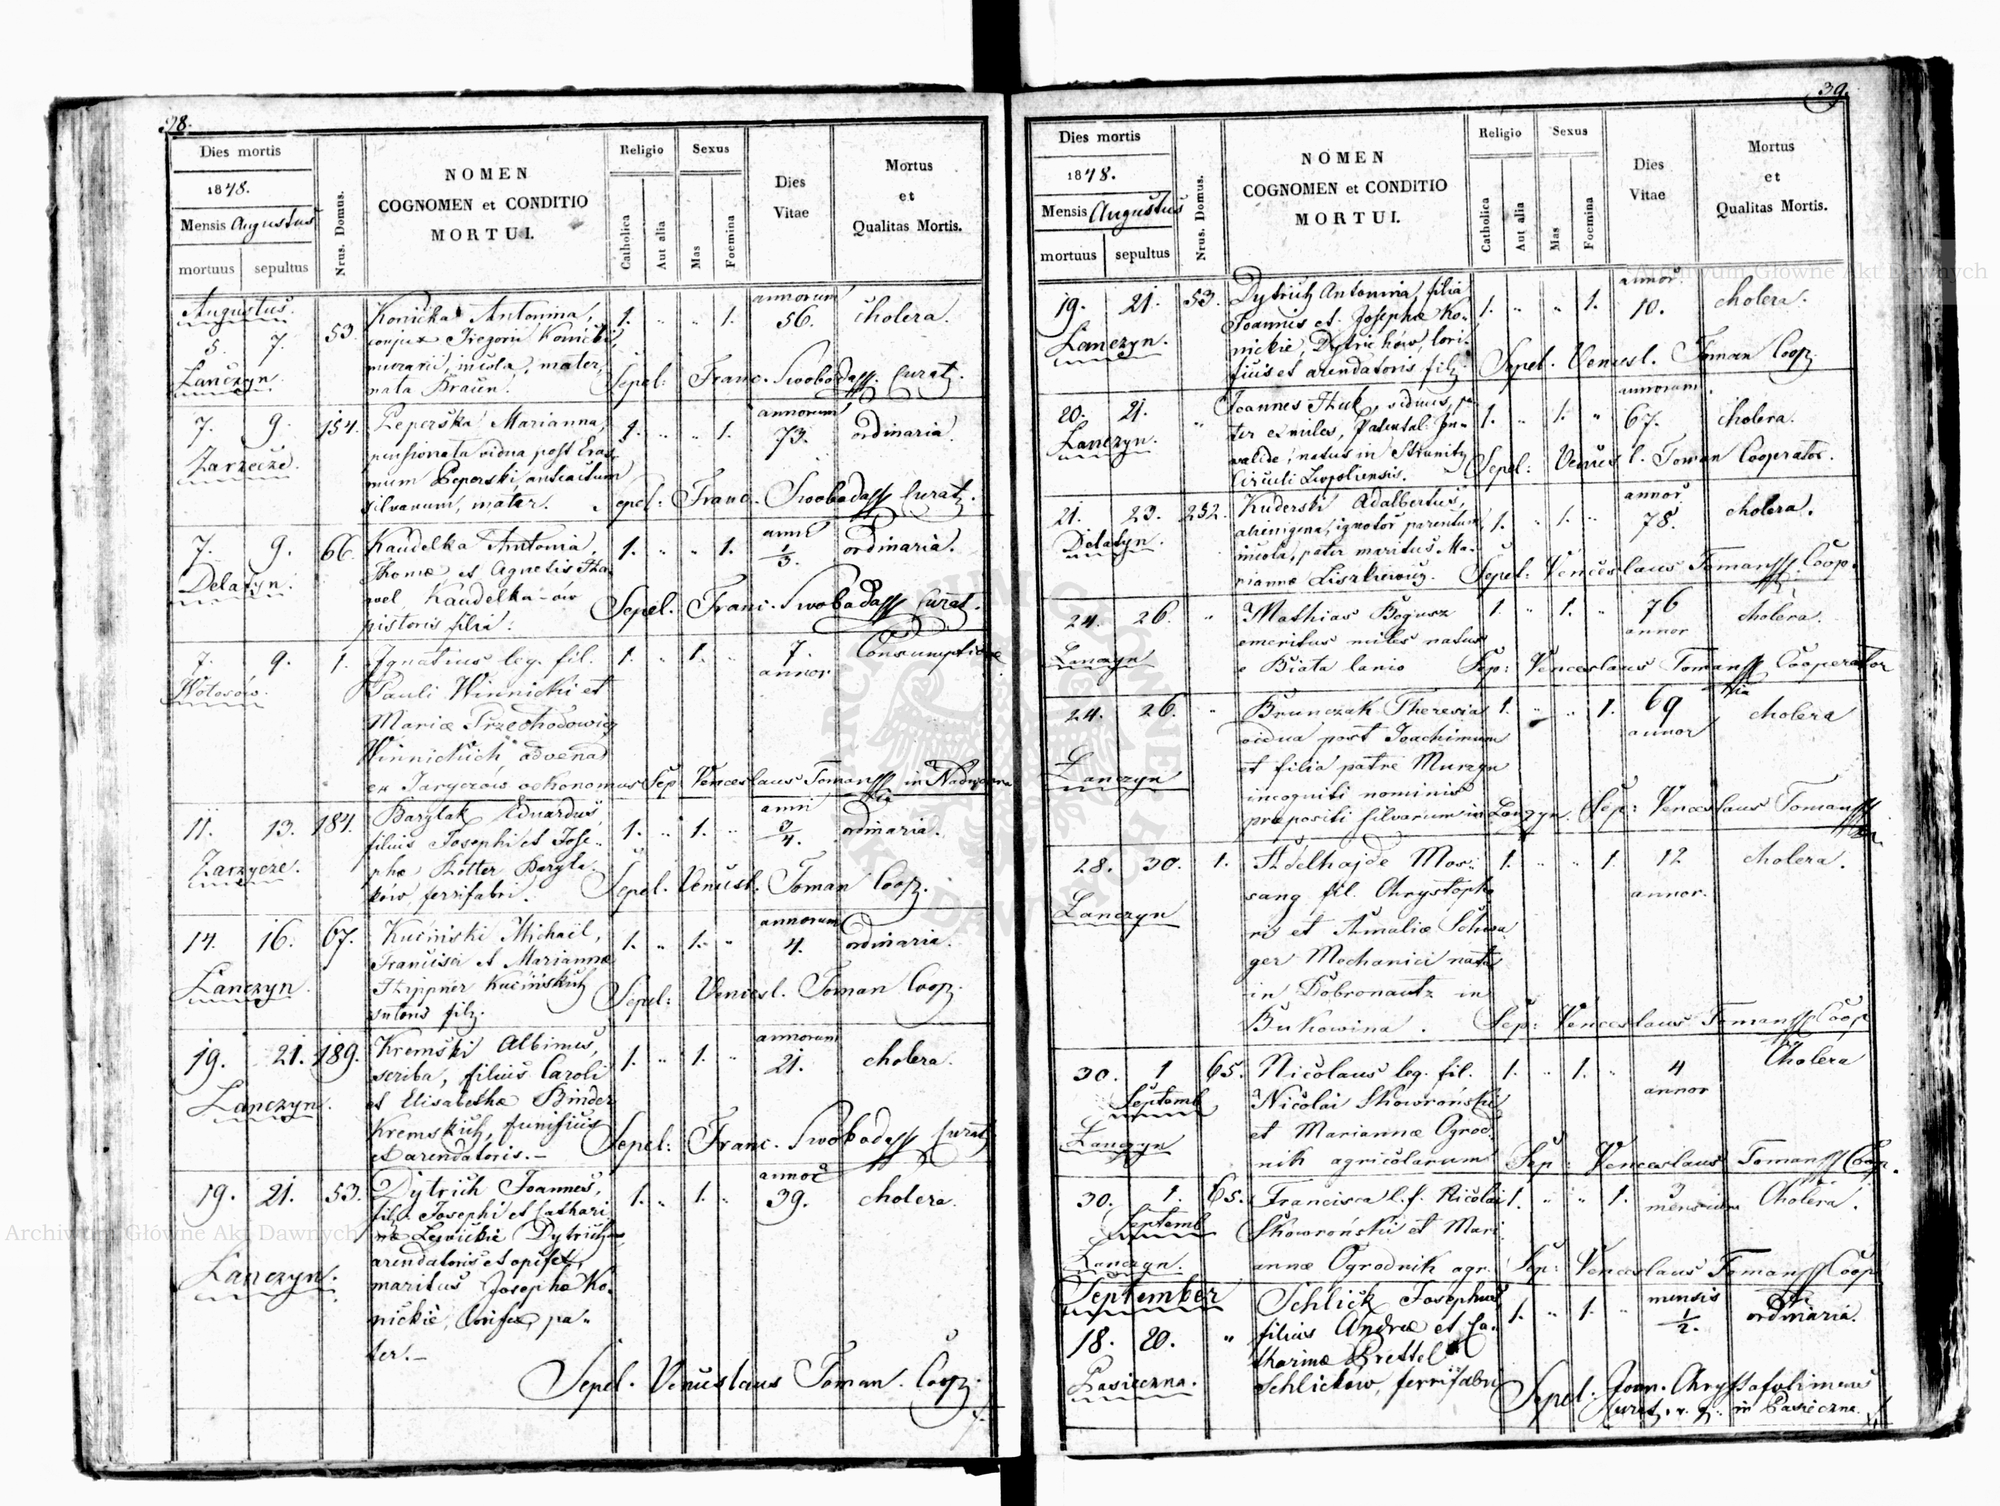 38.
Dies mortis
1848.
Mensis Augustus
mortuus
sepultus
Nrus. Domus.
NOMEN
COGNOMEN et CONDITIO
MORTUI.
Religio
Catholica
Aut alia
Sexus
Mas
Foemina
Dies
Vitae
Mortus
et
Qualitas Mortis.
Augustus.
5. 7. 53. Konicka Antonina, 1. „ „ 1. annorum 56. cholera.
conjux Gregorii Konicki,
murarii, incola, mater,
nata Braun.
Lanczyn.
Sepel: Franc. Swoboda Curat.
7. 9. 154. Peperska Marianna, 1. „ „ 1. annorum 73. ordinaria.
pensionata vidua post Eras-
mum Peperski,
silvarum, mater.
Zarzecze.
Sepel: Franc. Swoboda Curat.
7. 9. 66. Kaudelka Antonia, 1. „ „ 1. anni 1/3. ordinaria.
Thomæ et Agnetis
Kaudelka-ów
pistoris filia.
Delatyn.
Sepel. Franc. Swoboda Curat.
7. 9. 1. Ignatius leg. fil. 1. „ 1. „ 7. annor Consumptione
Pauli Winnicki et
Mariæ Przechodowicz
Winnickich advena
ex Jaryczów oekonomus
Wołosów.
Sep. Venceslaus Toman in Nadworna
11. 13. 184. Barylak Eduardus, 1. „ 1. „ anni 3/4. ordinaria.
filius Josephi et Jose-
phæ Kotter Baryla-
ków ferrifabri.
Zarzycze.
Sepel. Vencesl. Toman Coop.
14. 16. 67. Kuciński Michael, 1. „ 1. „ annorum 4. ordinaria.
Francisci et Mariannæ
Hyppner Kucińskich
sutoris filz.
Lanczyn.
Sepel: Vencesl. Toman Coop.
19. 21. 189. Kremski Albinus, 1. „ 1. „ annorum 21. cholera.
scriba, filius Caroli
et Elisabethæ Binder
Kremskich, funificis
et arendatoris.—
Lanczyn.
Sepel: Franc. Swoboda Curat.
19. 21. 53. Dytrich Joannes, 1. „ 1. „ annor 39. cholera.
filz. Josephi et Cathari-
næ Lewickie Dytrich
arendatoris et opifex,
maritus Josephæ Ko-
nickie, lorifex, pa-
ter.—
Lanczyn.
Sepel. Venceslaus Toman. Coop.
39.
Dies mortis
1848.
Mensis Augustus
mortuus
sepultus
Nrus. Domus.
NOMEN
COGNOMEN et CONDITIO
MORTUI.
Religio
Catholica
Aut alia
Sexus
Mas
Foemina
Dies
Vitae
Mortus
et
Qualitas Mortis.
19. 21. 53. Dytrich Antonina, filia 1. „ „ 1. annor. 10. cholera.
Joannis et Josephæ Ko-
nickie, Dytrichów, lori-
ficis et arendatoris filz.
Lanczyn.
Sepel. Vencesl. Toman Coop.
20. 21. „ Joannes Huk, viduus, pa- 1. „ 1. „ annorum 67. cholera.
ter ex miles, Patental. In-
valide, natus in
Circuli Leopoliensis.
Lanczyn.
Sepel: Vencesl. Toman Cooperator.
21. 23. 232. Kuderski Adalbertus, 1. „ 1. „ annor. 78. cholera.
alienigena, ignotor parentum
incola, pater maritus Ma-
riannæ Liszkiewicz.
Delatyn.
Sepel: Venceslaus Toman Coop.
24. 26. „ Mathias Bogusz 1. „ 1. „ 76 annor cholera.
emeritus miles natus
e Biała lanio
Lanczyn
Sep: Venceslaus Toman Cooperator
24. 26. „ Brunczak Theresia 1. „ „ 1. 69 annor cholera
vidua post Joachimum
et filia patre Murzyn
incogniti nominis
præpositi silvarum in Lanczyn.
Lanczyn
Sep: Venceslaus Toman
28. 30. 1. Adelhajde Mor- 1. „ „ 1. 12 annor. cholera.
sang fil. Chrystopho
ris et Amaliæ Schwa
ger Mechanici nata
in Dobronautz in
Bukowina.
Lanczyn
Sep: Venceslaus Toman Coop
30. 1 Septemb 65. Nicolaus leg. fil. 1. „ 1. „ 4 annor Cholera
Nicolai Skowroński
et Mariannæ Ogrod-
nik agricolarum
Lanczyn
Sep: Venceslaus Toman Coop.
30. 1. Septemb 65. Francisca l. f. Nicolai 1. „ „ 1. 3 mensium Cholera.
Skowroński et Mari-
annæ Ogrodnik agr.
Lanczyn.
Sep: Venceslaus Toman Coop
September
18. 20. „ Schlick Josephus 1. „ 1. „ mensis 1/2. ordinaria.
filius Andreæ et Ca-
tharinæ Prettel
Schlicków, ferrifabri
Pasieczna.
Sepel. Joan. Chryst
Curat. in Pasieczna.
Archiwum Główne Akt Dawnych
Archiwum Główne Akt Dawnych
ARCHIWUM GŁÓWNE AKT DAWNYCH